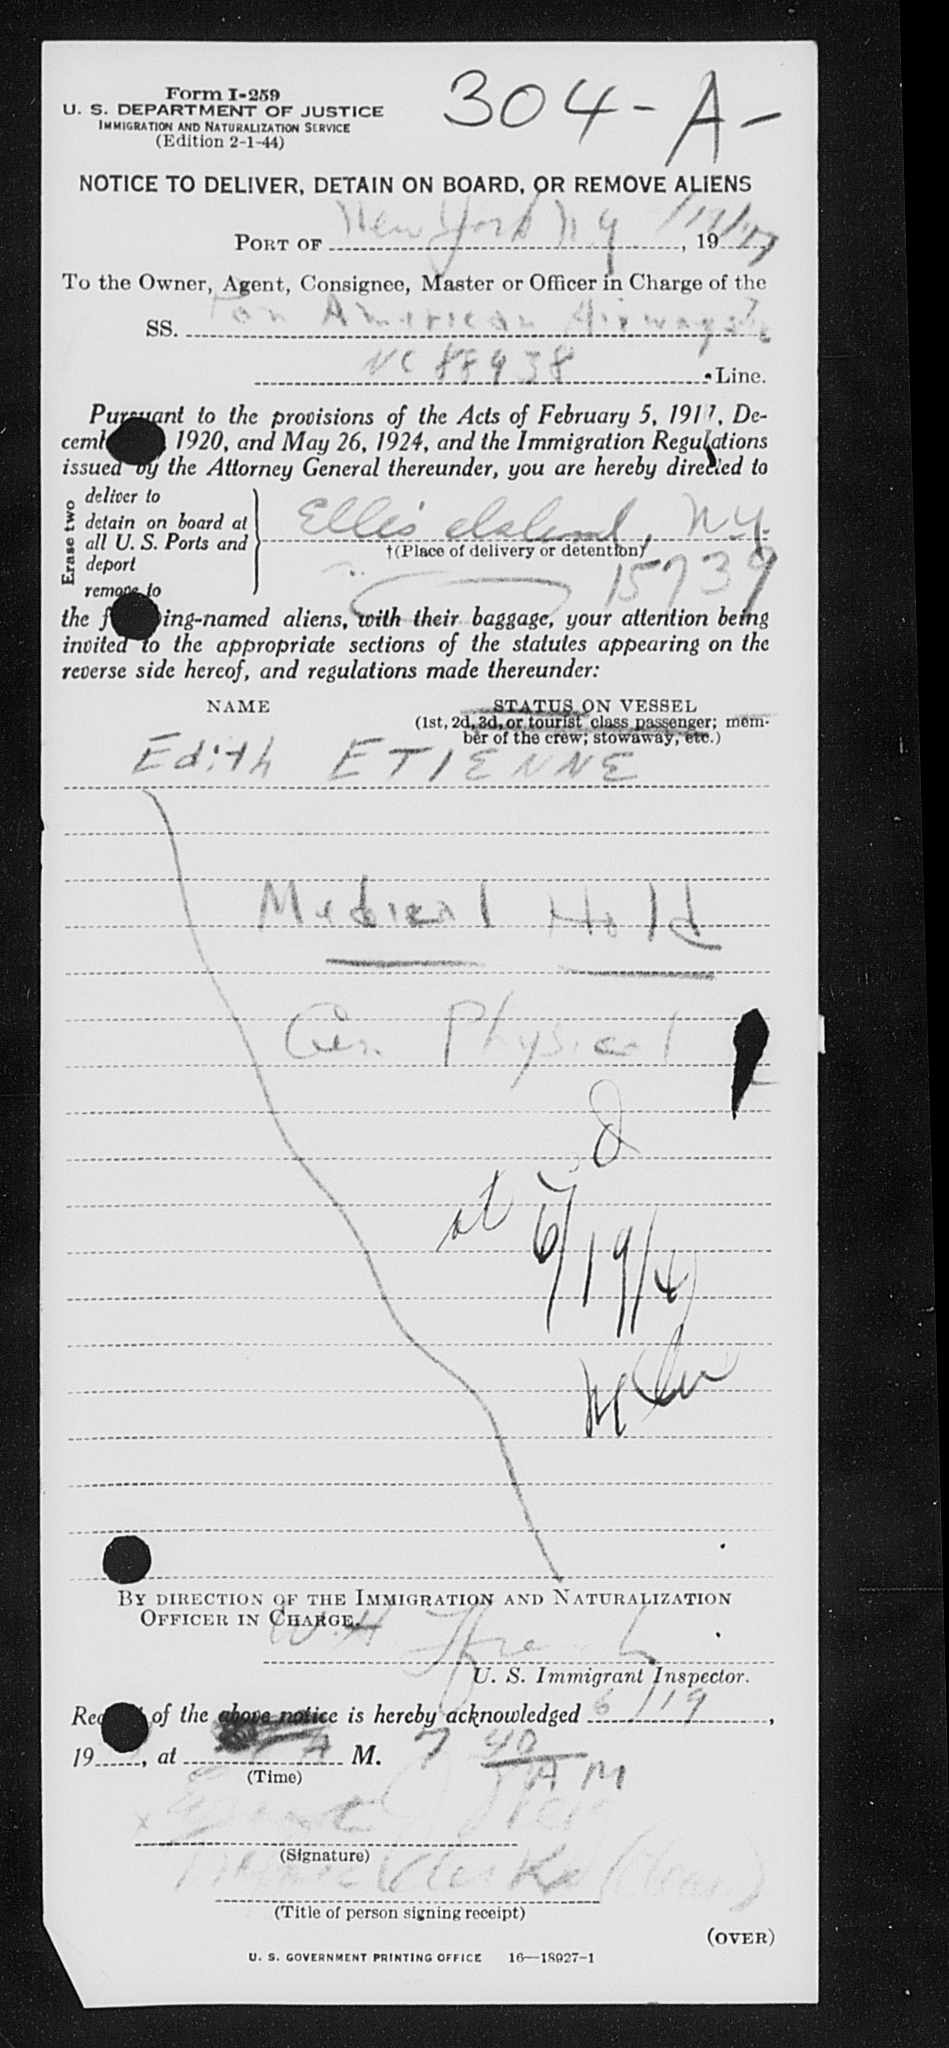 Form I-259
304-A-
U. S. DEPARTMENT OF JUSTICE
IMMIGRATION AND NATURALIZATION SERVICE
(Edition 2-1-44)
NOTICE TO DELIVER, DETAIN ON BOARD, OR REMOVE ALIENS
PORT OF New York N.Y , 19
To the Owner, Agent, Consignee, Master or Officer in Charge of the
SS. Pan American Airways
NC 88938 Line.
Pursuant to the provisions of the Acts of February 5, 1917, De-
1920, and May 26, 1924, and the Immigration Regulations
issued by the Attorney General thereunder, you are hereby directed to
Erase two
deliver to
detain on board at
all U. S. Ports and
deport
remove to
Ellis Island, N.Y.
†(Place of delivery or detention)
15739
the ing-named aliens, with their baggage, your attention being
invited to the appropriate sections of the statutes appearing on the
reverse side hereof, and regulations made thereunder:
NAME STATUS ON VESSEL
(1st, 2d, 3d, or tourist class passenger; mem-
ber of the crew; stowaway, etc.)
Edith ETIENNE
Medical Hold
Gen. Physical
6/19/4
BY DIRECTION OF THE IMMIGRATION AND NATURALIZATION
OFFICER IN CHARGE.
W.H
U. S. Immigrant Inspector.
of the above notice is hereby acknowledged 6/19 ,
19 , at A M. 7 40 AM
(Time)
(Signature)
(Title of person signing receipt)
(OVER)
U. S. GOVERNMENT PRINTING OFFICE 16—18927-1